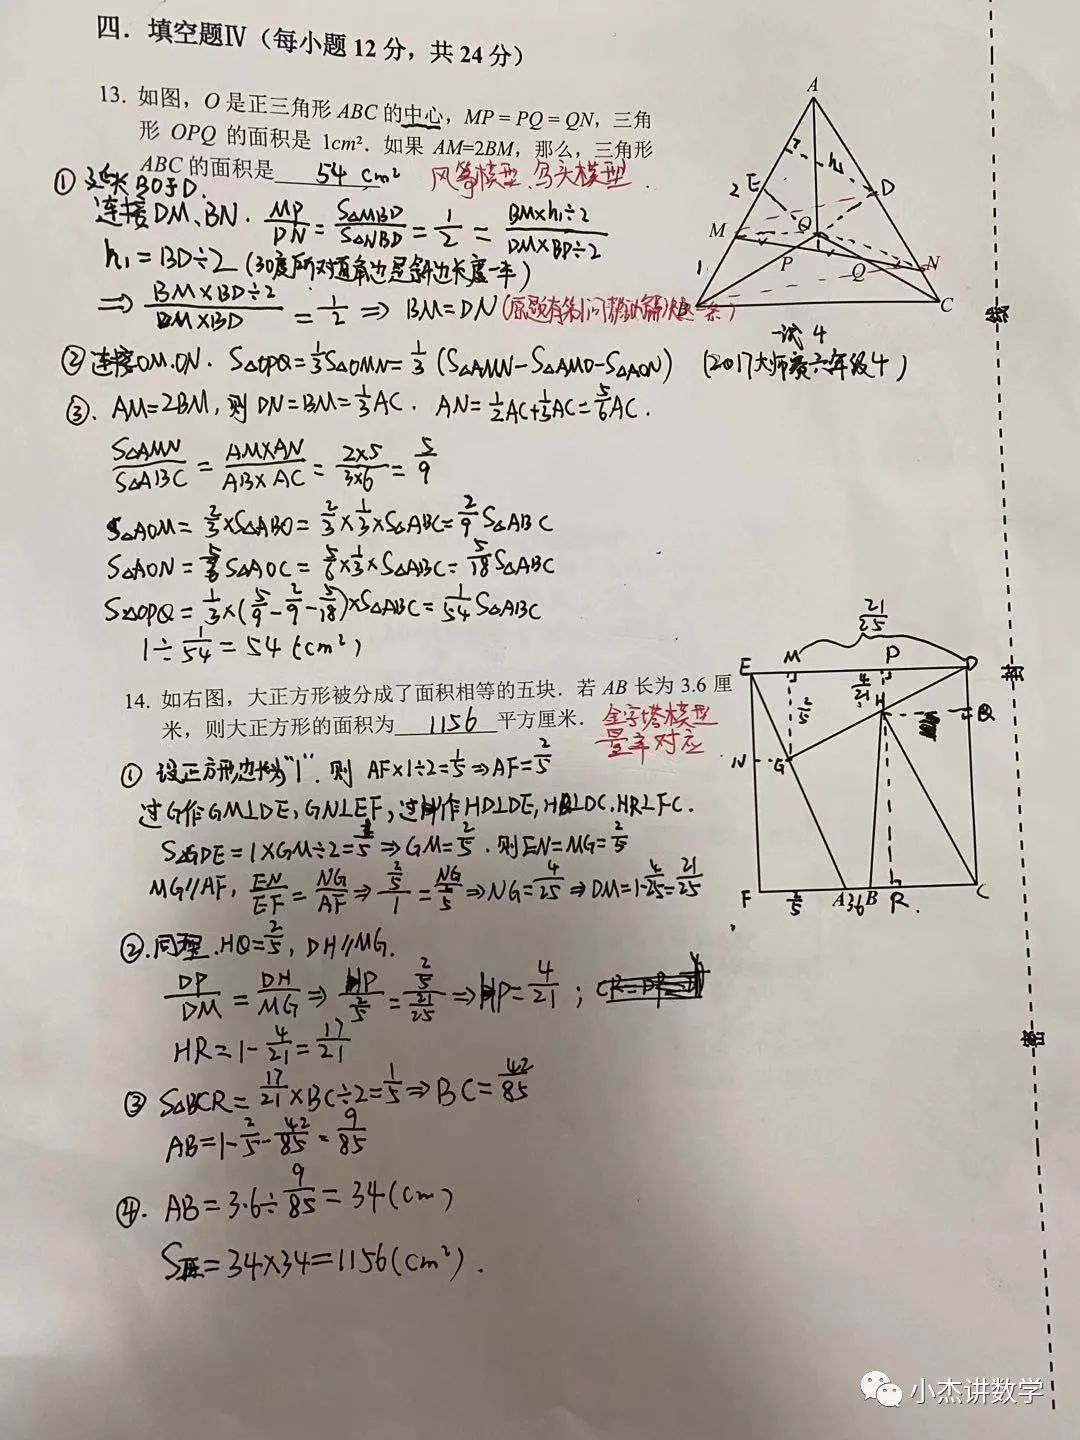 四．填空题Ⅳ（每小题 12 分，共 24 分）
13. 如图，O 是正三角形 ABC 的中心，MP = PQ = QN，三角
形 OPQ 的面积是 1cm². 如果 AM=2BM，那么，三角形
ABC 的面积是 54 cm²
风筝模型.鸟头模型.
① 延长BO于D.
连接DM、BN. MP/DN = S△MBD/S△NBD = 1/2 = BM×h₁÷2/DM×BD÷2
h₁=BD÷2 (30度所对直角边是斜边长度一半)
⇒ BM×BD÷2/DM×BD = 1/2 ⇒ BM=DN
② 连接OM.ON. S△OPQ=1/3S△OMN=1/3 (S△AMN-S△AMO-S△AON)
一试 4
(2017大师赛六年级4)
③. AM=2BM, 则 DN=BM=1/3AC. AN=1/2AC+1/3AC=5/6AC.
S△AMN/S△ABC = AM×AN/AB×AC = 2×5/3×6 = 5/9
S△AOM=2/3×S△ABO=2/3×1/3×S△ABC=2/9S△ABC
S△AON=5/6S△AOC=5/6×1/3×S△ABC=5/18S△ABC
S△OPQ=1/3×(5/9-2/9-5/18)×S△ABC=1/54S△ABC
1÷1/54=54(cm²)
A
h₁
2
E
D
M
O
1
P
Q
N
C
14. 如右图，大正方形被分成了面积相等的五块．若 AB 长为 3.6 厘
米，则大正方形的面积为 1156 平方厘米．
金字塔模型
量率对应
① 设正方形边长为"1". 则 AF×1÷2=1/5⇒AF=2/5
过G作GM⊥DE, GN⊥EF, 过H作HD⊥DE, HQ⊥DC.HR⊥FC.
S△GDE=1×GM÷2=1/5⇒GM=2/5. 则EN=MG=2/5
MG∥AF, EN/EF=NG/AF⇒2/5/1=NG/2/5⇒NG=4/25⇒DM=1-4/25=21/25
②.同理.HQ=2/5, DH∥MG.
DP/DM=DH/MG⇒HP/2/5=2/5/21/25⇒HP=4/21;
HR=1-4/21=17/21
③ S△BCR=17/21×BC÷2=1/5⇒BC=42/85
AB=1-2/5-42/85=9/85
④. AB=3.6÷9/85=34(cm)
S正=34×34=1156(cm²).
21/25
E
M
P
D
4/21
H
2/5
Q
N
G
F
2/5
A
3.6
B
R.
C
线
封
密
小杰讲数学